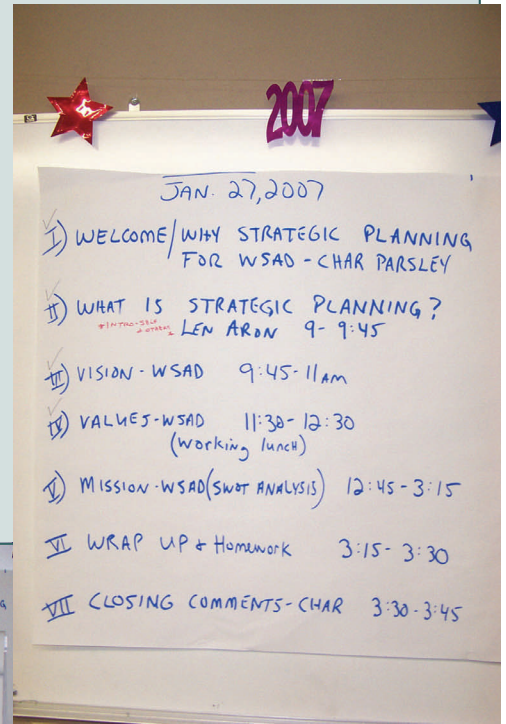 2007
JAN. 27, 2007
I) WELCOME/WHY STRATEGIC PLANNING
FOR WSAD - CHAR PARSLEY
II) WHAT IS STRATEGIC PLANNING?
LEN ARON 9-9:45
III) VISION - WSAD 9:45-11AM
IV) VALUES-WSAD 11:30-12:30
(working lunch)
V) MISSION-WSAD (SWOT ANALYSIS) 12:45-3:15
VI WRAP UP & Homework 3:15-3:30
VII CLOSING COMMENTS-CHAR 3:30-3:45